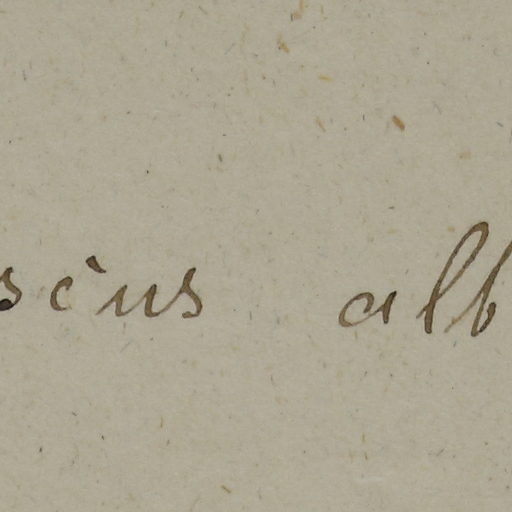 scus alb